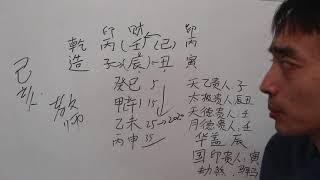 印 财 卩
乾 丙 (壬) (己) 丙
造 子 辰 丑 寅
癸巳 5
甲午 15
乙未 25→20
丙申 35
天乙贵人:子
太极贵人:辰丑
天德贵人:壬
月德贵人:壬
华盖 辰
国印贵人:寅
劫煞
教师